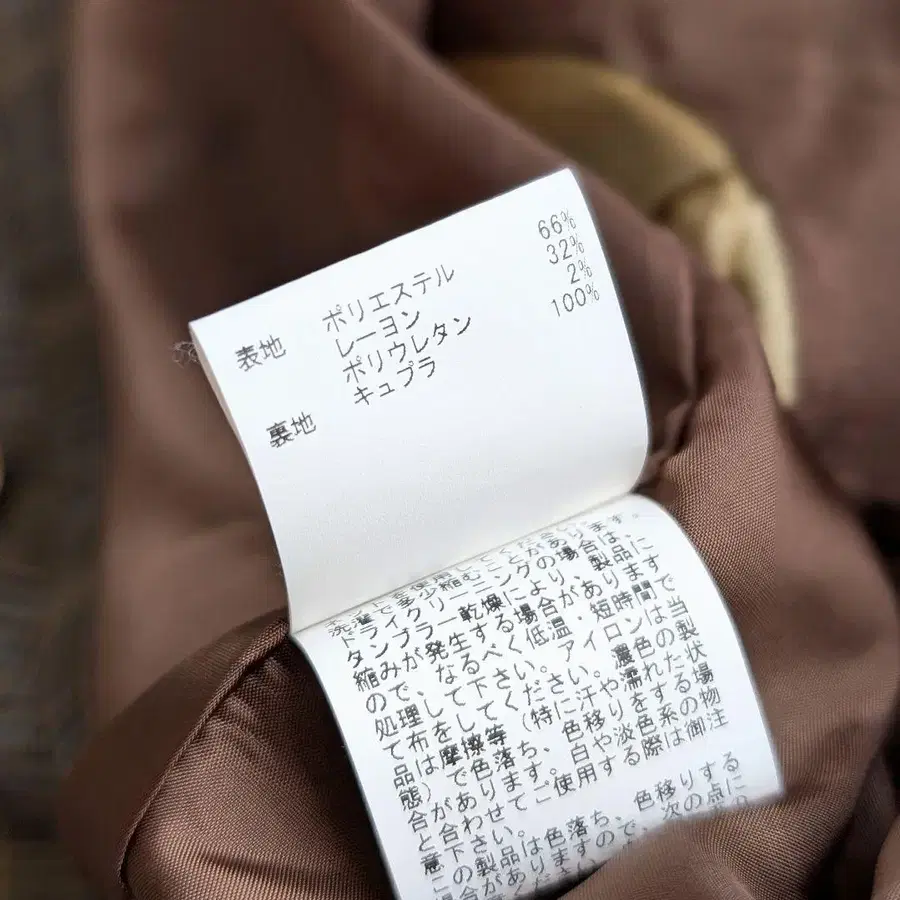 表地 ポリエステル 66%
レーヨン 32%
ポリウレタン 2%
裏地 キュプラ 100%
洗濯で多少縮むことがあります。
ドライクリーニングの場合は、
タンブラー乾燥により、製品に
縮みが発生する場合があります
ので、なるべく低温・短時間で
処理して下さい。アイロンは当
て布をしてください。濃色の製
品は摩擦等(特に汗や濡れた状
態)で色落ち、色移りをする場
合があります。白や淡色系の物
と合わせてご使用する際は御注
意下さい。
この製品は色落ち、色移りする
場合がありますので、次の点に